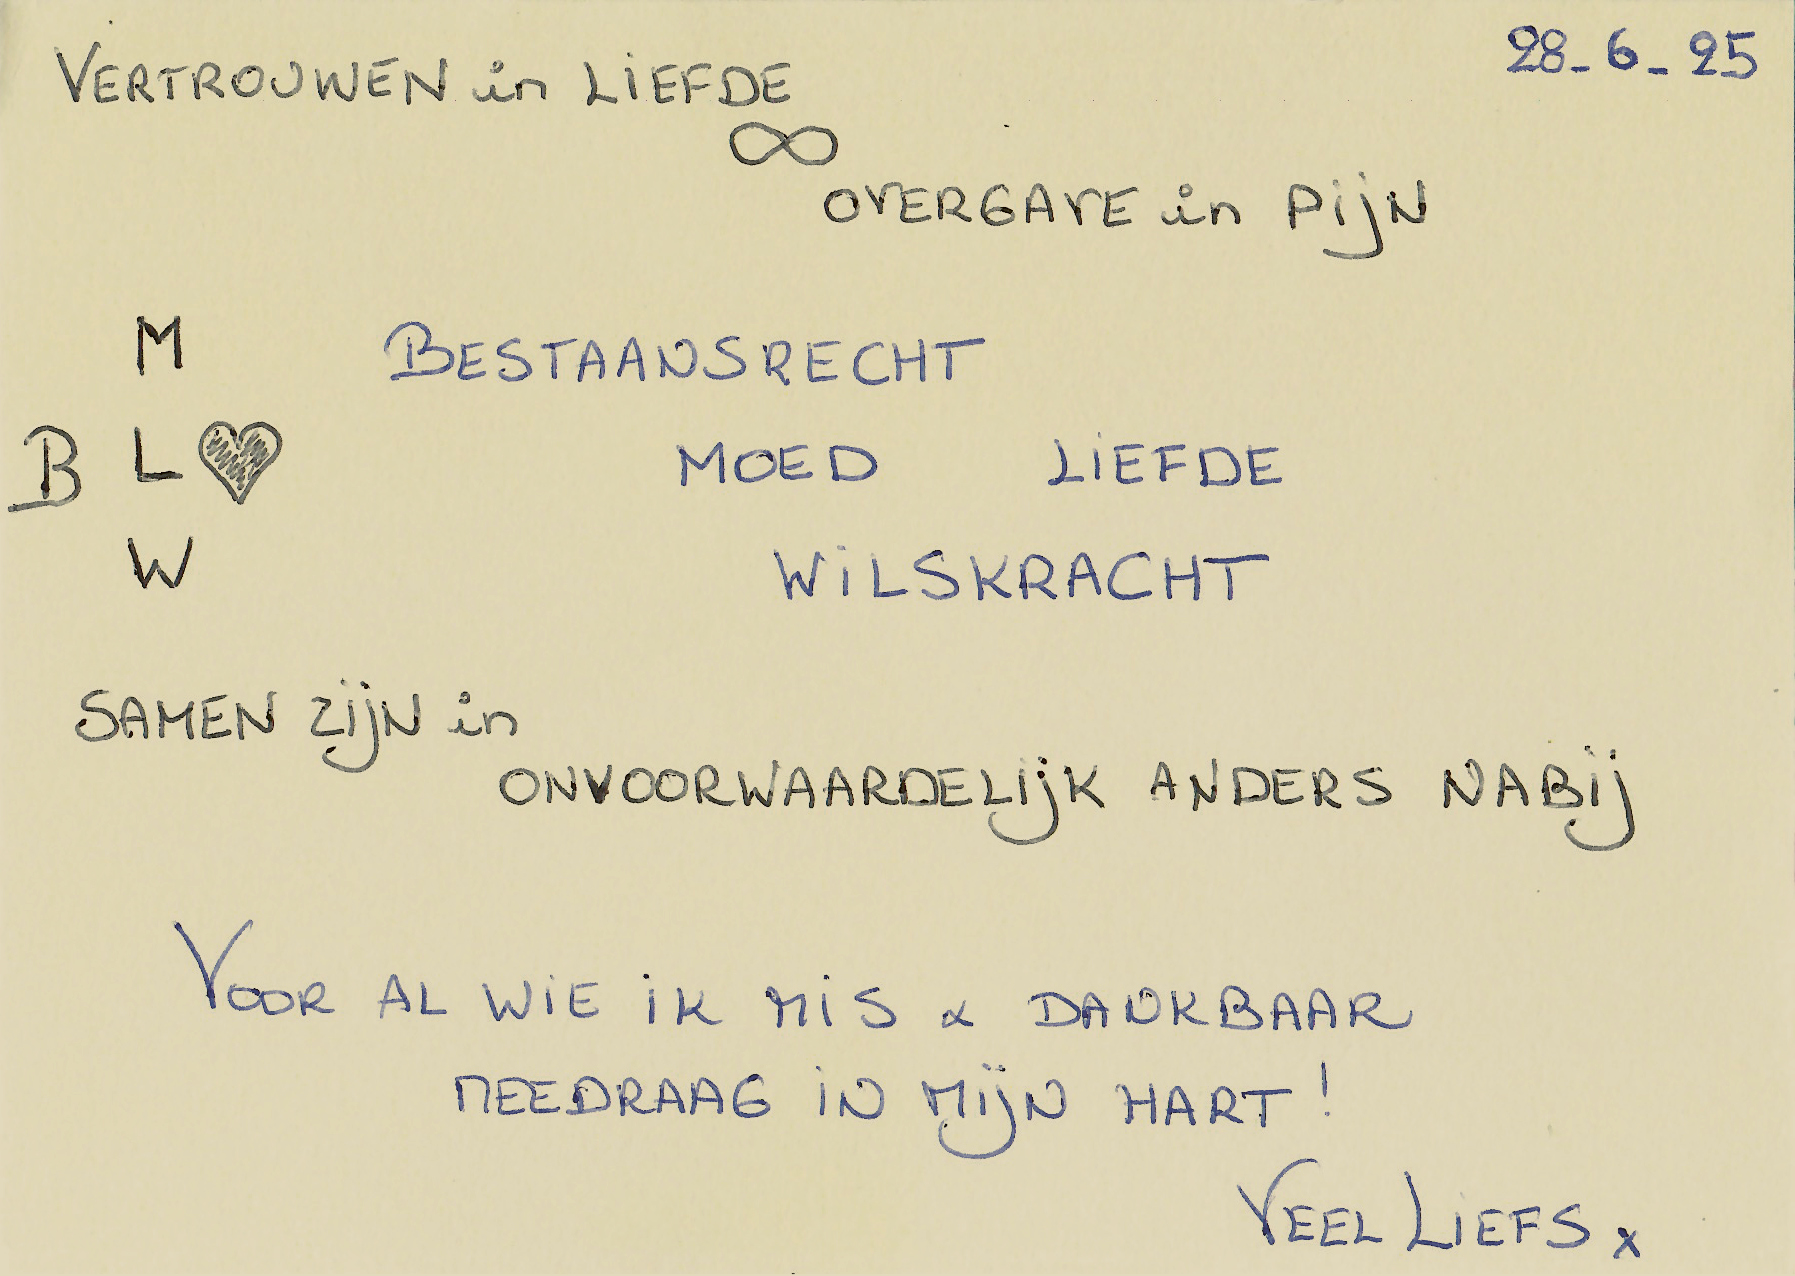 28-6-25
VERTROUWEN in LIEFDE
∞
OVERGAVE in PIJN
M
B L ♥
W
BESTAANSRECHT
MOED LIEFDE
WILSKRACHT
SAMEN ZIJN in
ONVOORWAARDELIJK ANDERS NABIJ
VOOR AL WIE IK MIS & DANKBAAR
MEEDRAAG IN MIJN HART!
VEEL LIEFS x